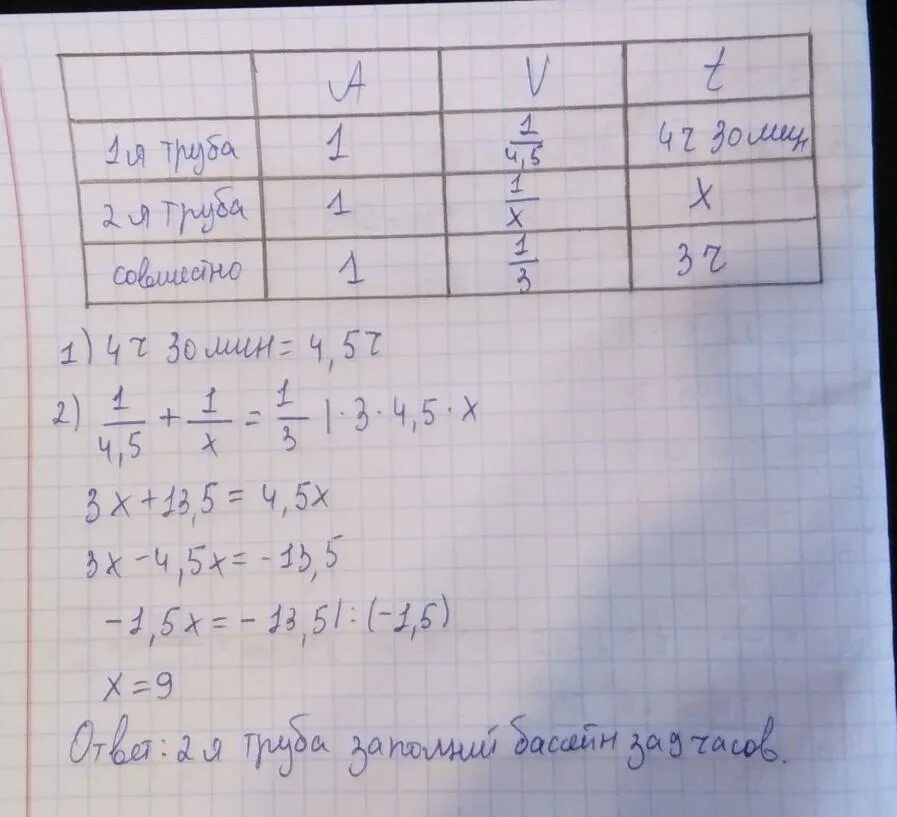 A V t
1я труба 1 1/4,5 4ч 30 мин
2я труба 1 1/x x
совместно 1 1/3 3ч
1) 4ч 30 мин = 4,5ч
2) 1/4,5 + 1/x = 1/3 | · 3 · 4,5 · x
3x + 13,5 = 4,5x
3x - 4,5x = - 13,5
- 1,5x = - 13,5 | : (-1,5)
x = 9
Ответ: 2я труба заполний басейн за 9 часов.